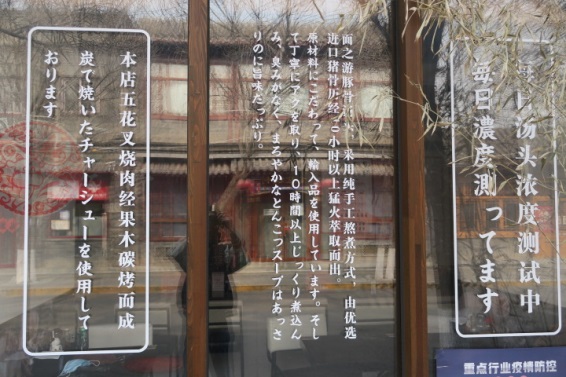 每日汤头浓度测试中
毎日濃度測ってます
面之游豚骨 采用纯手工熬煮方式，由优选
进口猪骨历经10小时以上猛火萃取而出。
原材料にこだわって、輸入品を使用しています。そし
て丁寧にアクを取り、10時間以上じっくり煮込ん
み、臭みがなく、まろやかなとんこつスープはあっさ
りのに旨味たっぷり。
本店五花叉烧肉经果木碳烤而成
炭で焼いたチャーシューを使用して
おります
重点行业疫情防控